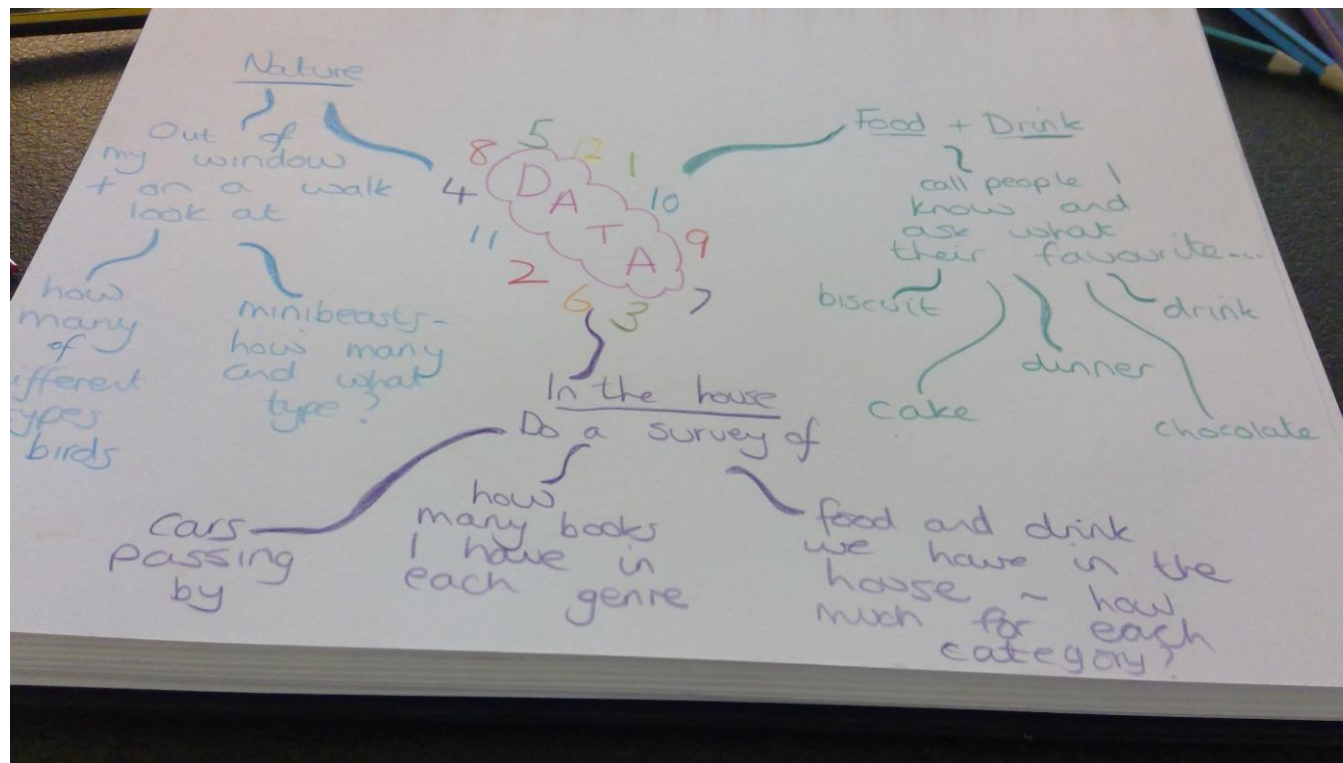 Nature
Out of
my window
+ on a walk
look at
how
many
of
ifferent
ypes
birds
minibeasts-
how many
and what
type?
5
8
12
1
4
10
11
9
2
7
6
3
DATA
Food + Drink
call people I
know and
ask what
their favourite...
biscuit
cake
dinner
drink
chocolate
In the house
Do a survey of
cars
passing
by
how
many books
I have in
each genre
food and drink
we have in the
house ~ how
much for each
category?